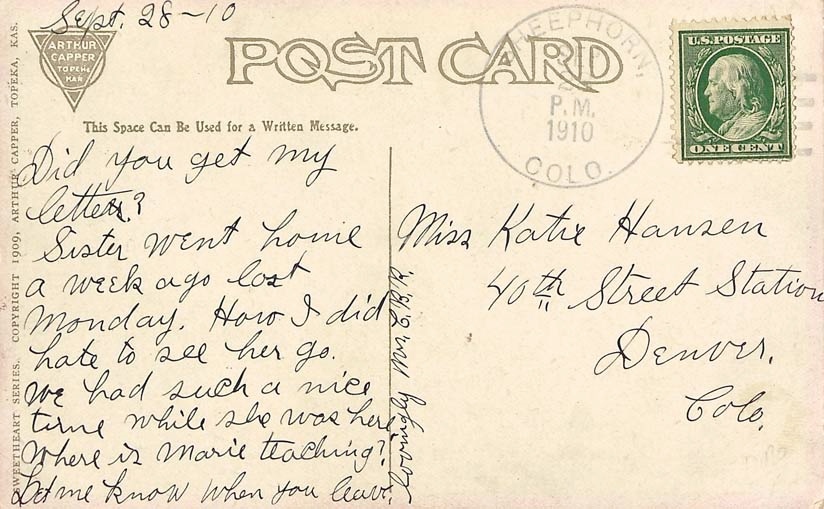 Sept. 28-10
ARTHUR
CAPPER
TOPEKA
KAR
POST CARD
This Space Can Be Used for a Written Message.
SHEEPHORN,
P.M.
1910
COLO.
U.S. POSTAGE
ONE CENT
SWEETHEART SERIES. COPYRIGHT 1909, ARTHUR CAPPER, TOPEKA, KAS.
Did you get my
letters?
Sister went home
a week ago last
Monday. How I did
hate to see her go.
We had such a nice
time while she was here.
Where is Marie teaching?
Let me know when you leave.
Lovingly
Miss Katie Hansen
40th Street Station
Denver,
Colo.